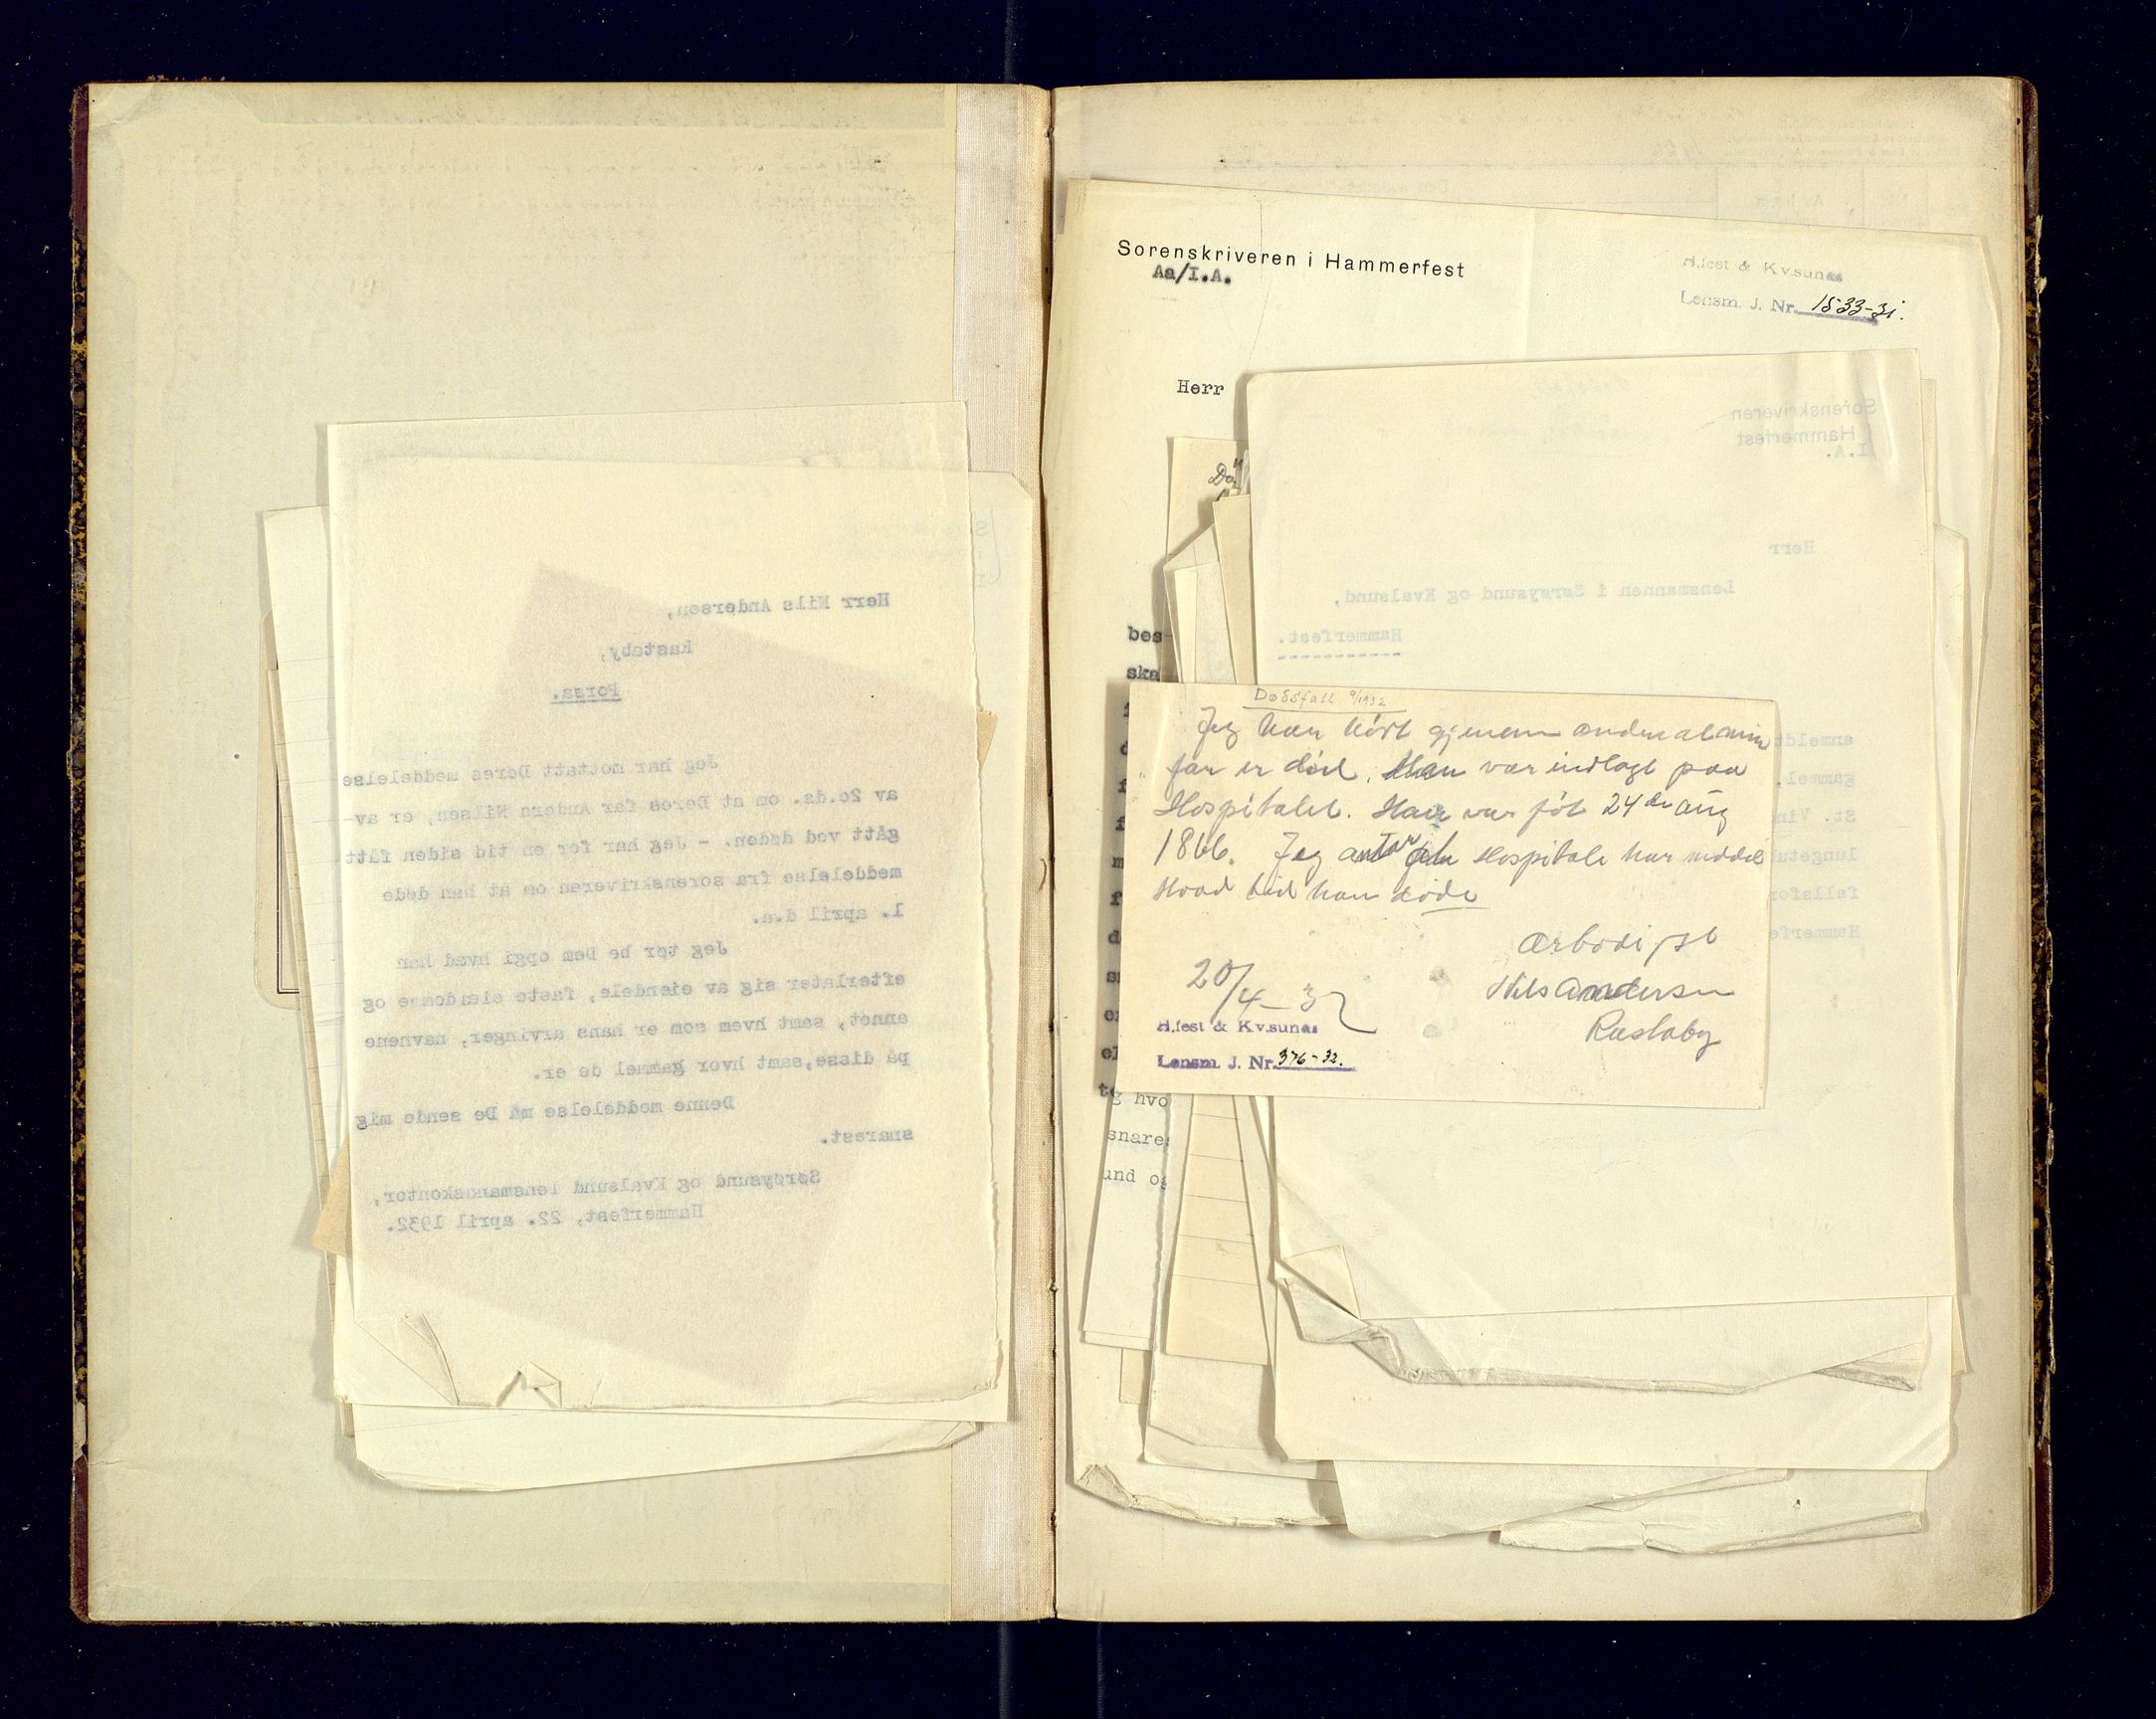 Herr Nils Andersen,
Rastaby,
Porsa.
Jeg har mottatt Deres meddelelse
av 2o.ds. om at Deres far Anders Nilsen, er av-
gått ved døden. - Jeg har for en tid siden fått
meddelelse fra sorenskriveren om at han døde
1. april d.a.
Jeg tør be Dem opgi hvad han
efterlater sig av eiendele, faste eiendomme og
annet, samt hvem som er hans arvinger, navnene
på disse,samt hvor gammel de er.
Denne meddelelse må De sende mig
snarest.
Sørøysund og Kvalsund lensmannskontor,
Hammerfest, 22. april 1932.
Sorenskriveren i Hammerfest
Aa/I.A.
H.fest & Kv.sunds
Lensm. J. Nr. 1533-31.
Herr
Sorenskriveren
i Hammerfest
I.A.
Herr
Lensmannen i Sørøysund og Kvalsund,
Hammerfest.
bes-
ska
anmeldt
gammel,
St. Vin
lungetu
fallsfor
Hammerfe
Dødsfall 9/1932
Jeg har hørt gjenem andre at min
far er død. Han var indlagt paa
Hospitalet. Han var føt 24 de aug
1866. Jeg antar Hospitale har meddel
Hvad tid han døde
Ærbødigst
Nils Andersen
Rastaby
20/4-32
H.fest & Kv.sunds
Lensm. J. Nr. 376-32.
g hvo
snares
und og